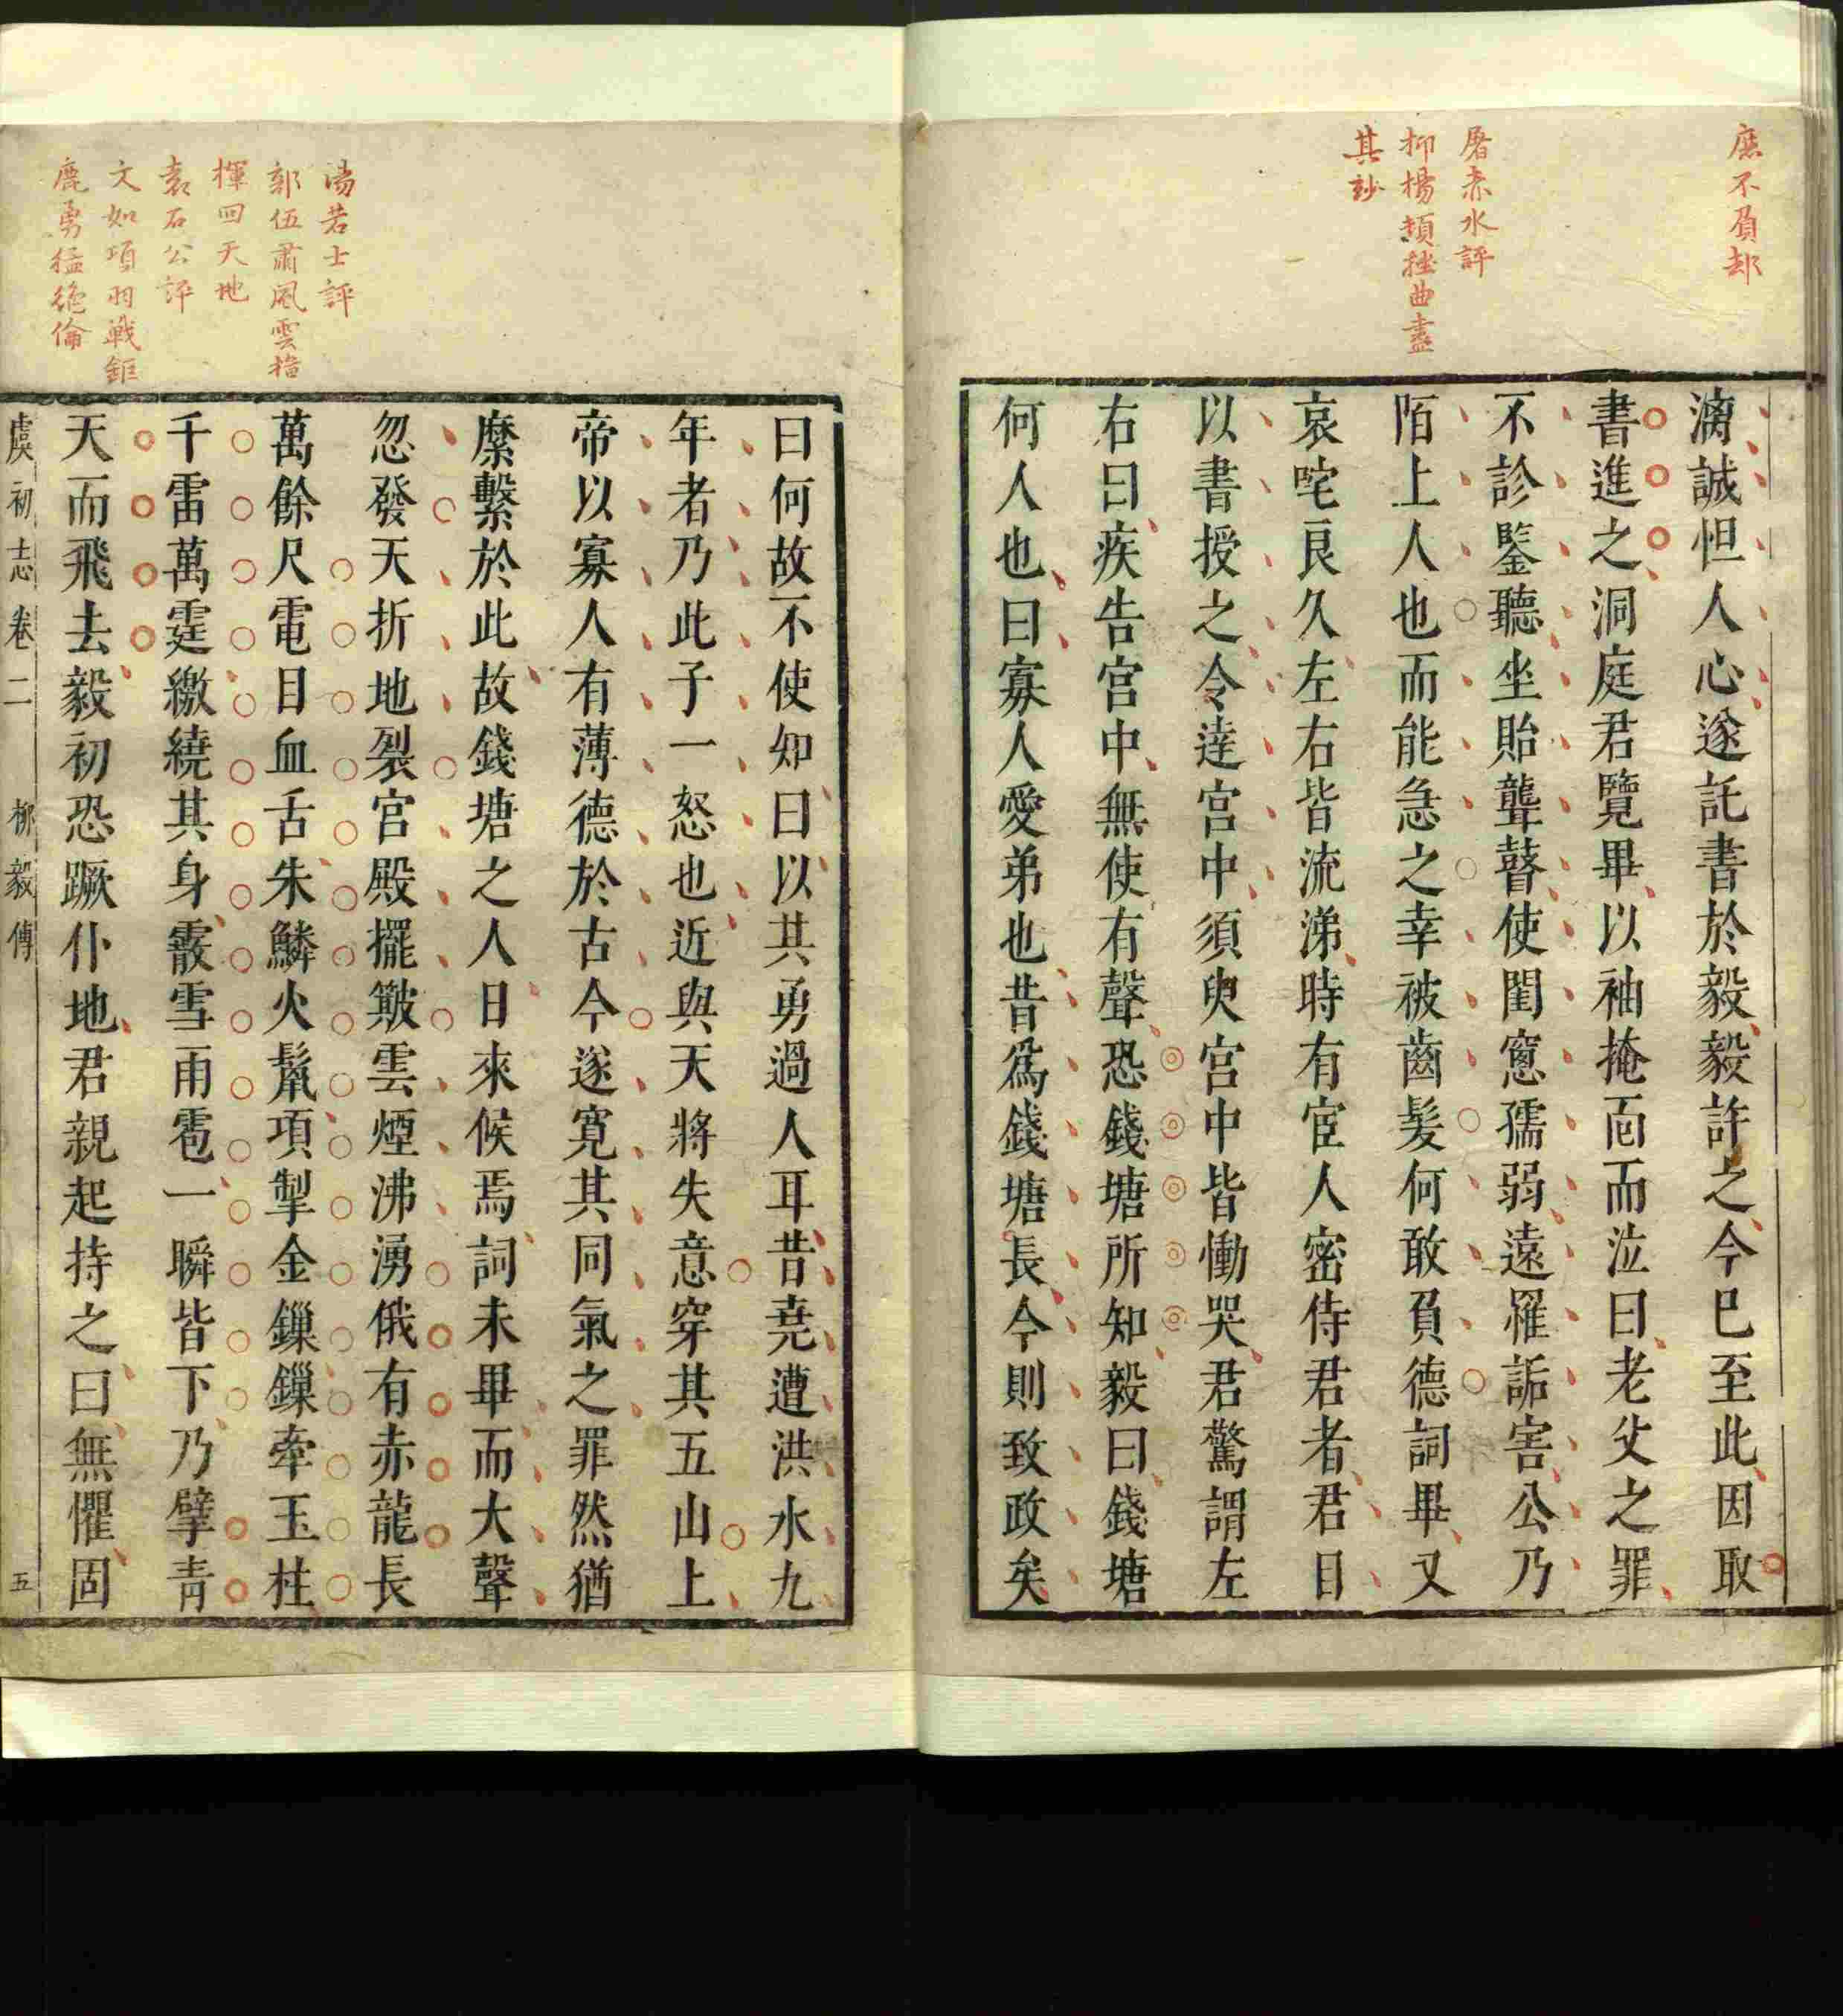 庶不負却
屠赤水評
抑揚頓挫曲盡
其玅
漓誠怛人心遂託書於毅毅許之今巳至此因取
書進之洞庭君覽畢以袖掩面而泣曰老父之罪
不診鑒聽坐貽聾瞽使閨窻孺弱遠罹詬害公乃
陌上人也而能急之幸被齒髪何敢負德詞畢又
哀咤良久左右皆流涕時有宦人密侍君者君目
以書授之令達宮中須臾宮中皆慟哭君驚謂左
右曰疾告宮中無使有聲恐錢塘所知毅曰錢塘
何人也曰寡人愛弟也昔爲錢塘長今則致政矣
湯若士評
部伍肅風雲指
揮回天地
袁石公評
文如項羽戰鉅
鹿勇猛絶倫
曰何故不使知曰以其勇過人耳昔堯遭洪水九
年者乃此子一怒也近與天將失意穿其五山上
帝以寡人有薄德於古今遂寛其同氣之罪然猶
縻繫於此故錢塘之人日來候焉詞未畢而大聲
忽發天折地裂宮殿擺簸雲煙沸湧俄有赤龍長
萬餘尺電目血舌朱鱗火鬣項掣金鏁鏁牽玉柱
千雷萬霆繳繞其身霰雪雨雹一瞬皆下乃擘青
天而飛去毅初恐蹶仆地君親起持之曰無懼固
虞初志 卷二 柳毅傳 五